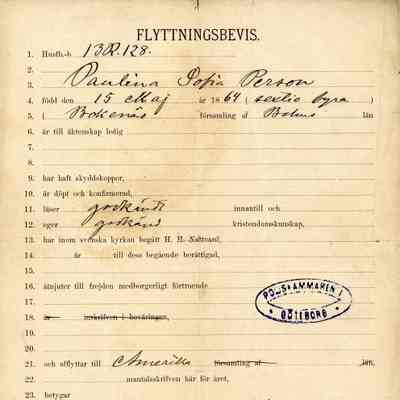 FLYTTNINGSBEVIS.
1. Husfb.-b 13R.128.
2.
3. Paulina Sofia Person
4. född den 15 Maj år 1864 ( sextio fyra )
5. ( Bokenäs församling af Bohus län
6. är till äktenskap ledig
7.
8.
9. har haft skyddskoppor,
10. är döpt och konfirmerad,
11. läser godkändt innantill och
12. eger godkänd kristendomskunskap,
13. har inom svenska kyrkan begått H. H. Nattvard,
14. är till dess begående berättigad,
15.
16. åtnjuter till frejden medborgerligt förtroende
17.
18. är inskrifven i beväringen,
POLISKAMMAREN I
GÖTEBORG
20.
21. och afflyttar till Amerika församling af län,
22. mantalsskrifven här för året,
23. betygar